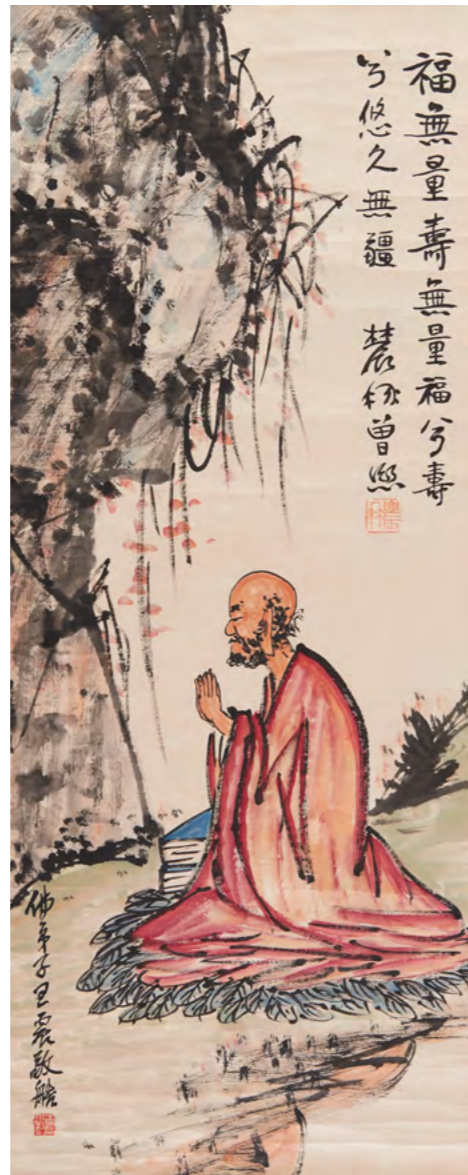 福無量壽無量福兮壽
兮悠久無疆 農髯曾熙
佛弟子王震敬繪